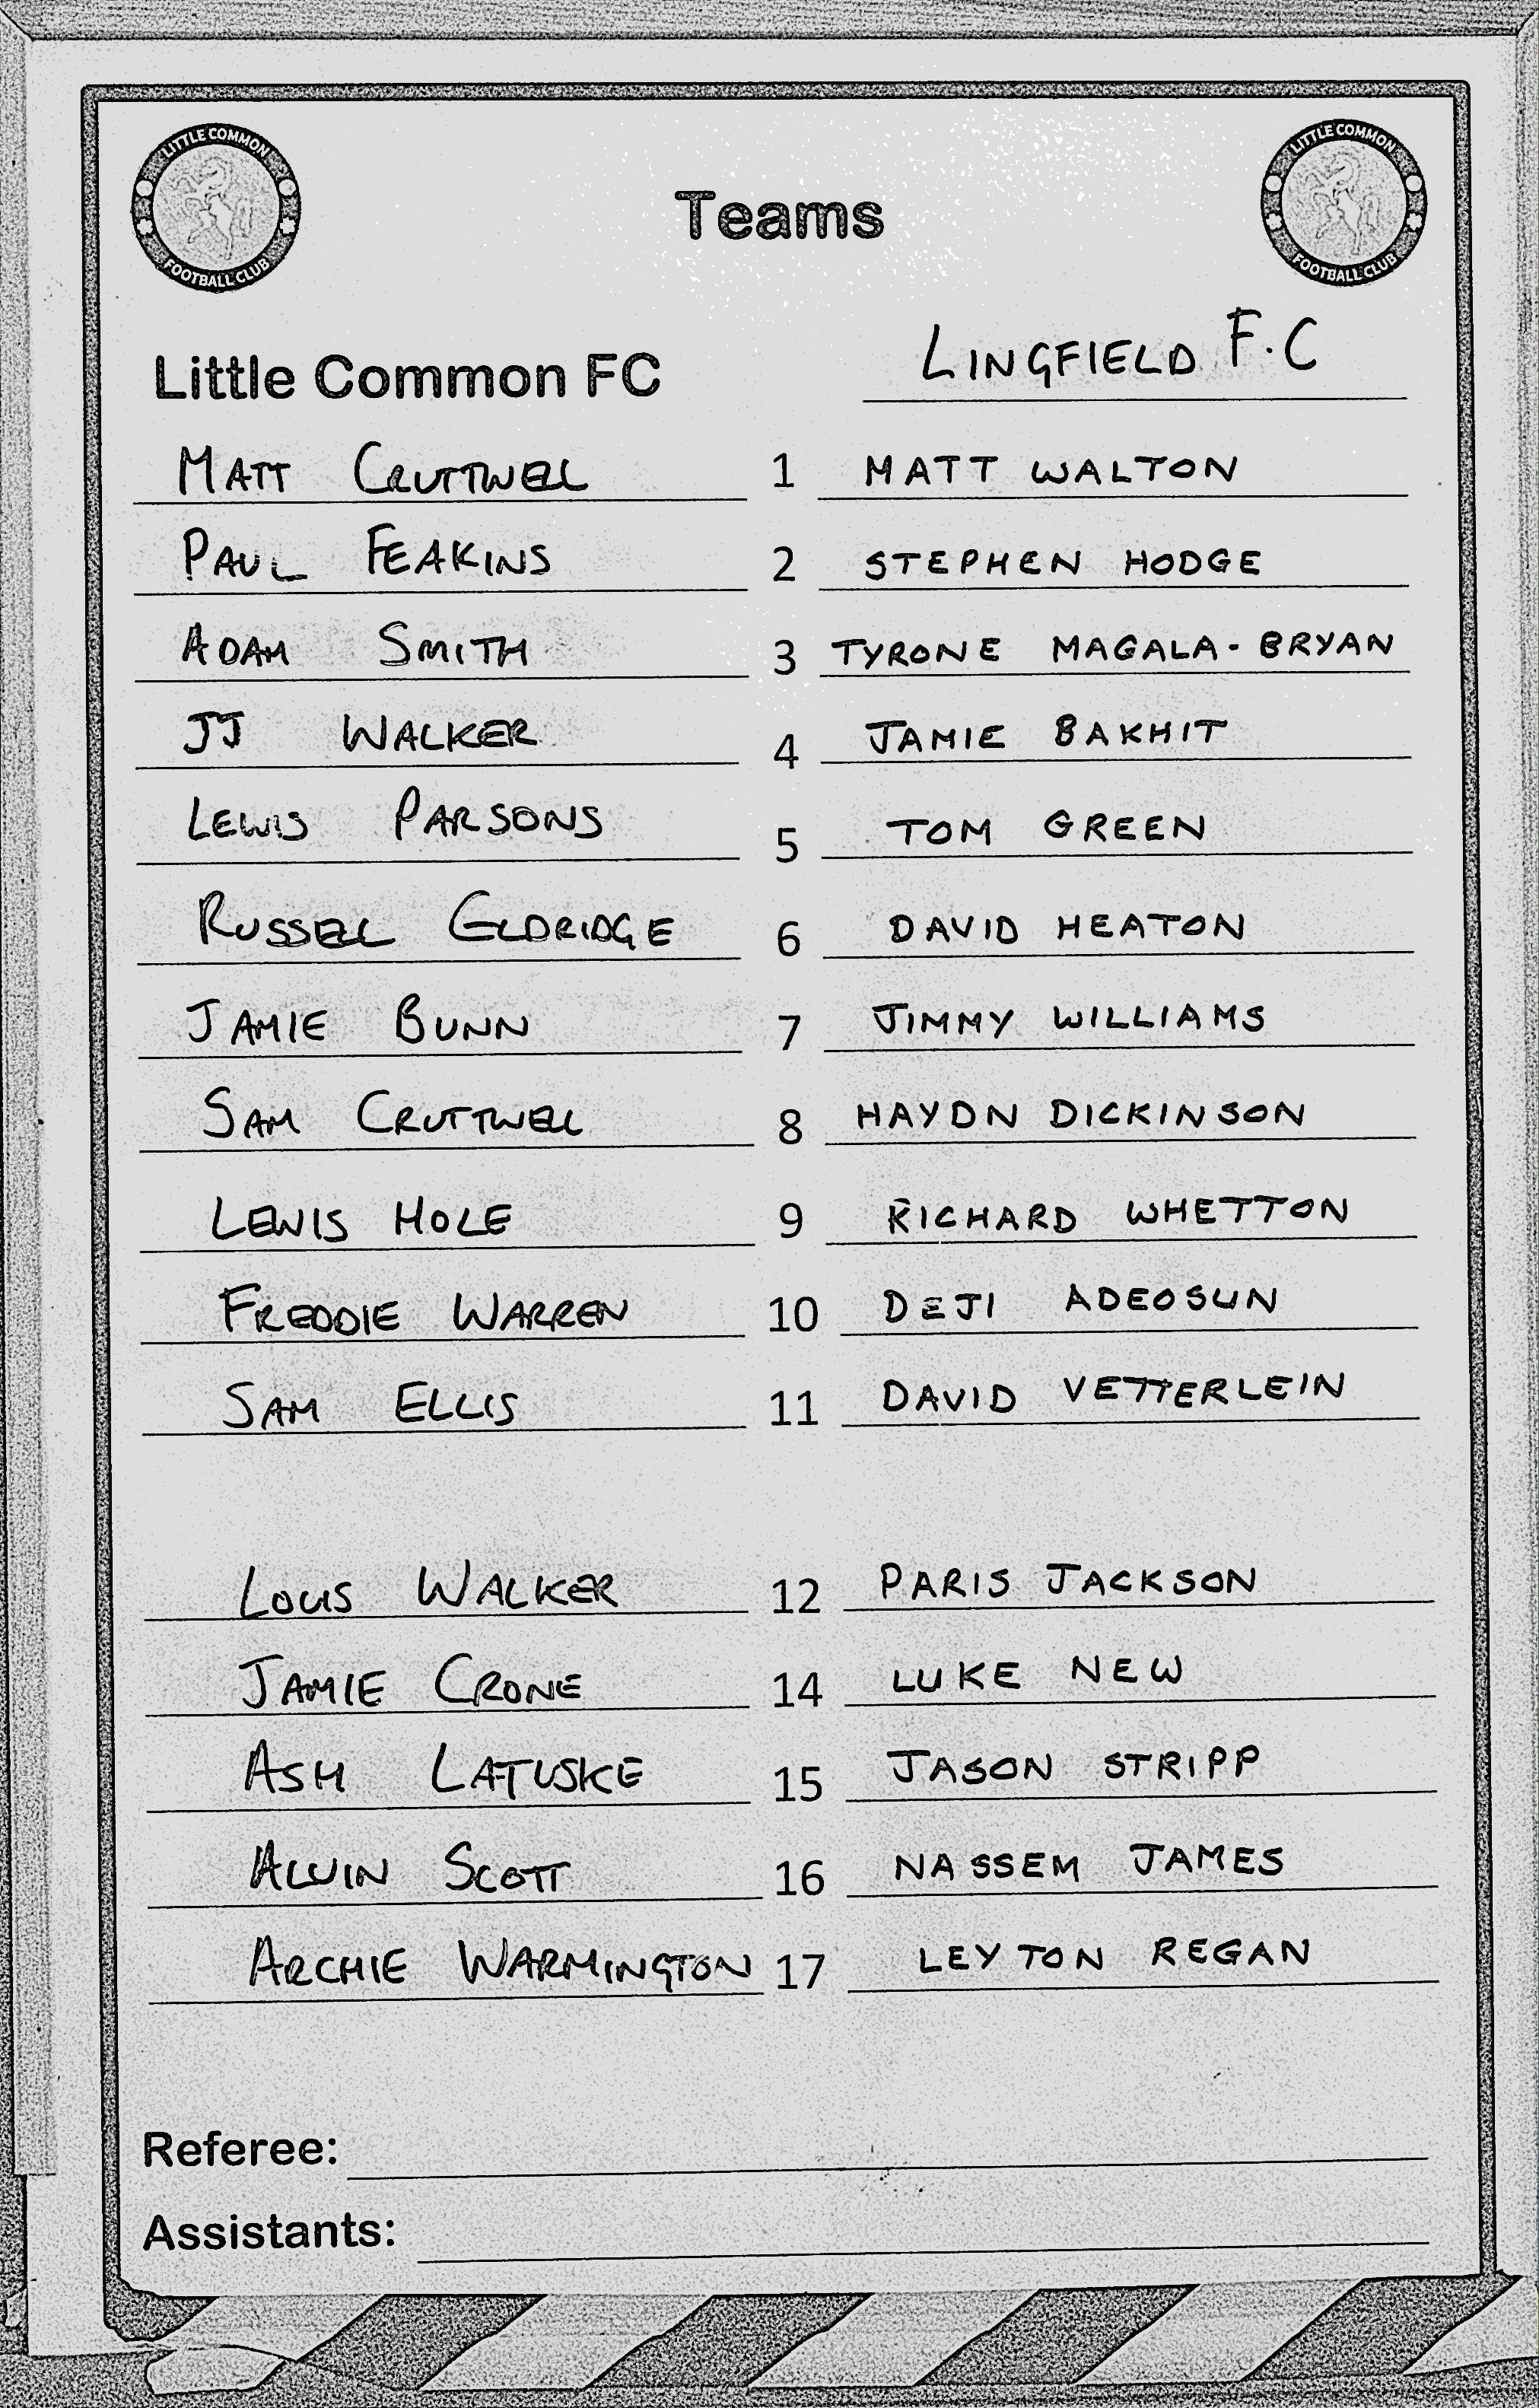 LITTLE COMMON FOOTBALL CLUB
LITTLE COMMON FOOTBALL CLUB
Teams
Little Common FC LINGFIELD F.C
MATT CRUTTWELL 1 MATT WALTON
PAUL FEAKINS 2 STEPHEN HODGE
ADAM SMITH 3 TYRONE MAGALA-BRYAN
JJ WALKER 4 JAMIE BAKHIT
LEWIS PARSONS 5 TOM GREEN
RUSSELL ELDRIDGE 6 DAVID HEATON
JAMIE BUNN 7 JIMMY WILLIAMS
SAM CRUTTWELL 8 HAYDN DICKINSON
LEWIS HOLE 9 RICHARD WHETTON
FREDDIE WARREN 10 DEJI ADEOSUN
SAM ELLIS 11 DAVID VETTERLEIN
LOUIS WALKER 12 PARIS JACKSON
JAMIE CRONE 14 LUKE NEW
ASH LATUSKE 15 JASON STRIPP
ALVIN SCOTT 16 NASSEM JAMES
ARCHIE WARMINGTON 17 LEYTON REGAN
Referee:
Assistants: